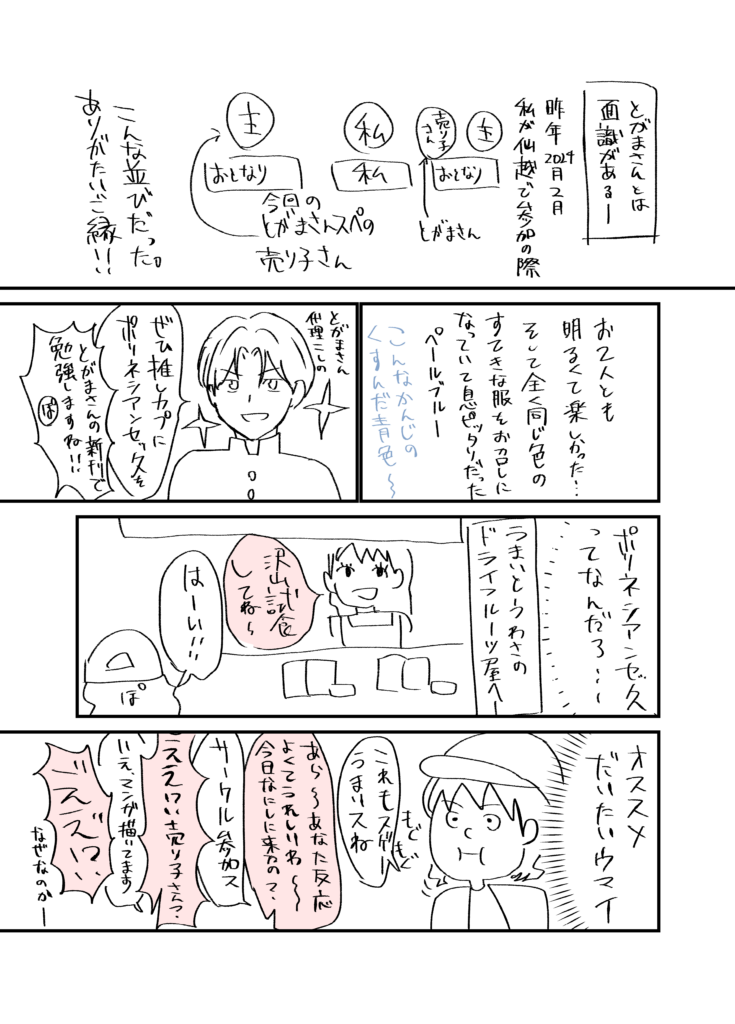 とがまさんとは
面識があるー
昨年2024年2月
私が仙越で参加の際
主
売り子
さん
おとなり
とがまさん
私
私
主
おとなり
今回の
とがまさんスペの
売り子さん
こんな並びだった。
ありがたいご縁!!
お2人とも
明るくて楽しかった…
そして全く同じ色の
すてきな服をお召しに
なっていて息ピッタリだった
ペールブルー
こんなかんじの
くすんだ青色〜
とがまさん
代理こしの
ぜひ推しカプに
ポリネシアンセックスを
とがまさんの新刊で
勉強しますね!!
ぽ
ポリネシアンゼ久
ってなんだろ…〜
うまいとうわさの
ドライフルーツ屋へー
沢山試食
してね〜
はーい!!
ぽ
オススメ
だいたいウマイ
もぐ
もぐ
これもスゲー
うまいスね
あら〜あなた反応
よくてうれしいわ〜
今日なにしに来たの?、
サークル参加ス
ええ!?い売り子さん?
いえ、マンガ描いてます
ごえ゛え゛!?い
なぜなのかー